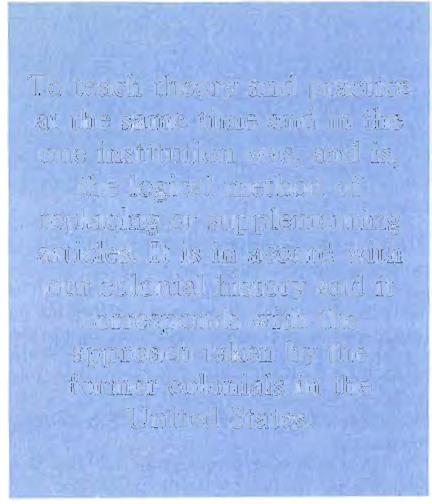 To teach theory and practice
at the same time and in the
one institution was, and is,
the logical method of
replacing or supplementing
articles. It is in accord with
our colonial history and it
corresponds with the
approach taken by the
former colonials in the
United States.